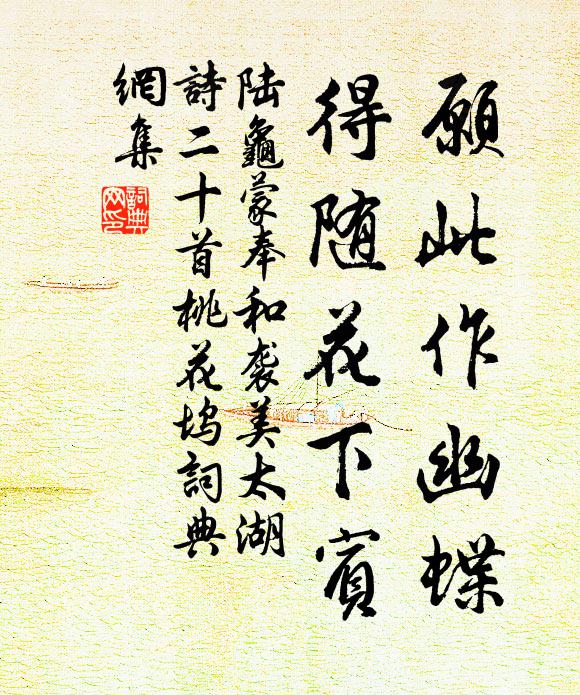 願此作幽蝶
得随花下賓
陆龜蒙奉和袭美太湖
詩二十首桃花坞詞典
網集
詞典
网印